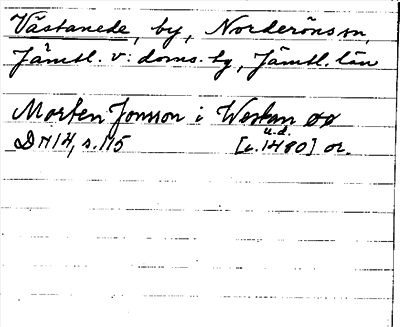 Västanede, by, Norderöns sn,
Jämtl. v: doms. tg, Jämtl. län
Morten Jonsson i Westan øø
u.d.
DN 14, s. 115 [c. 1480] or.